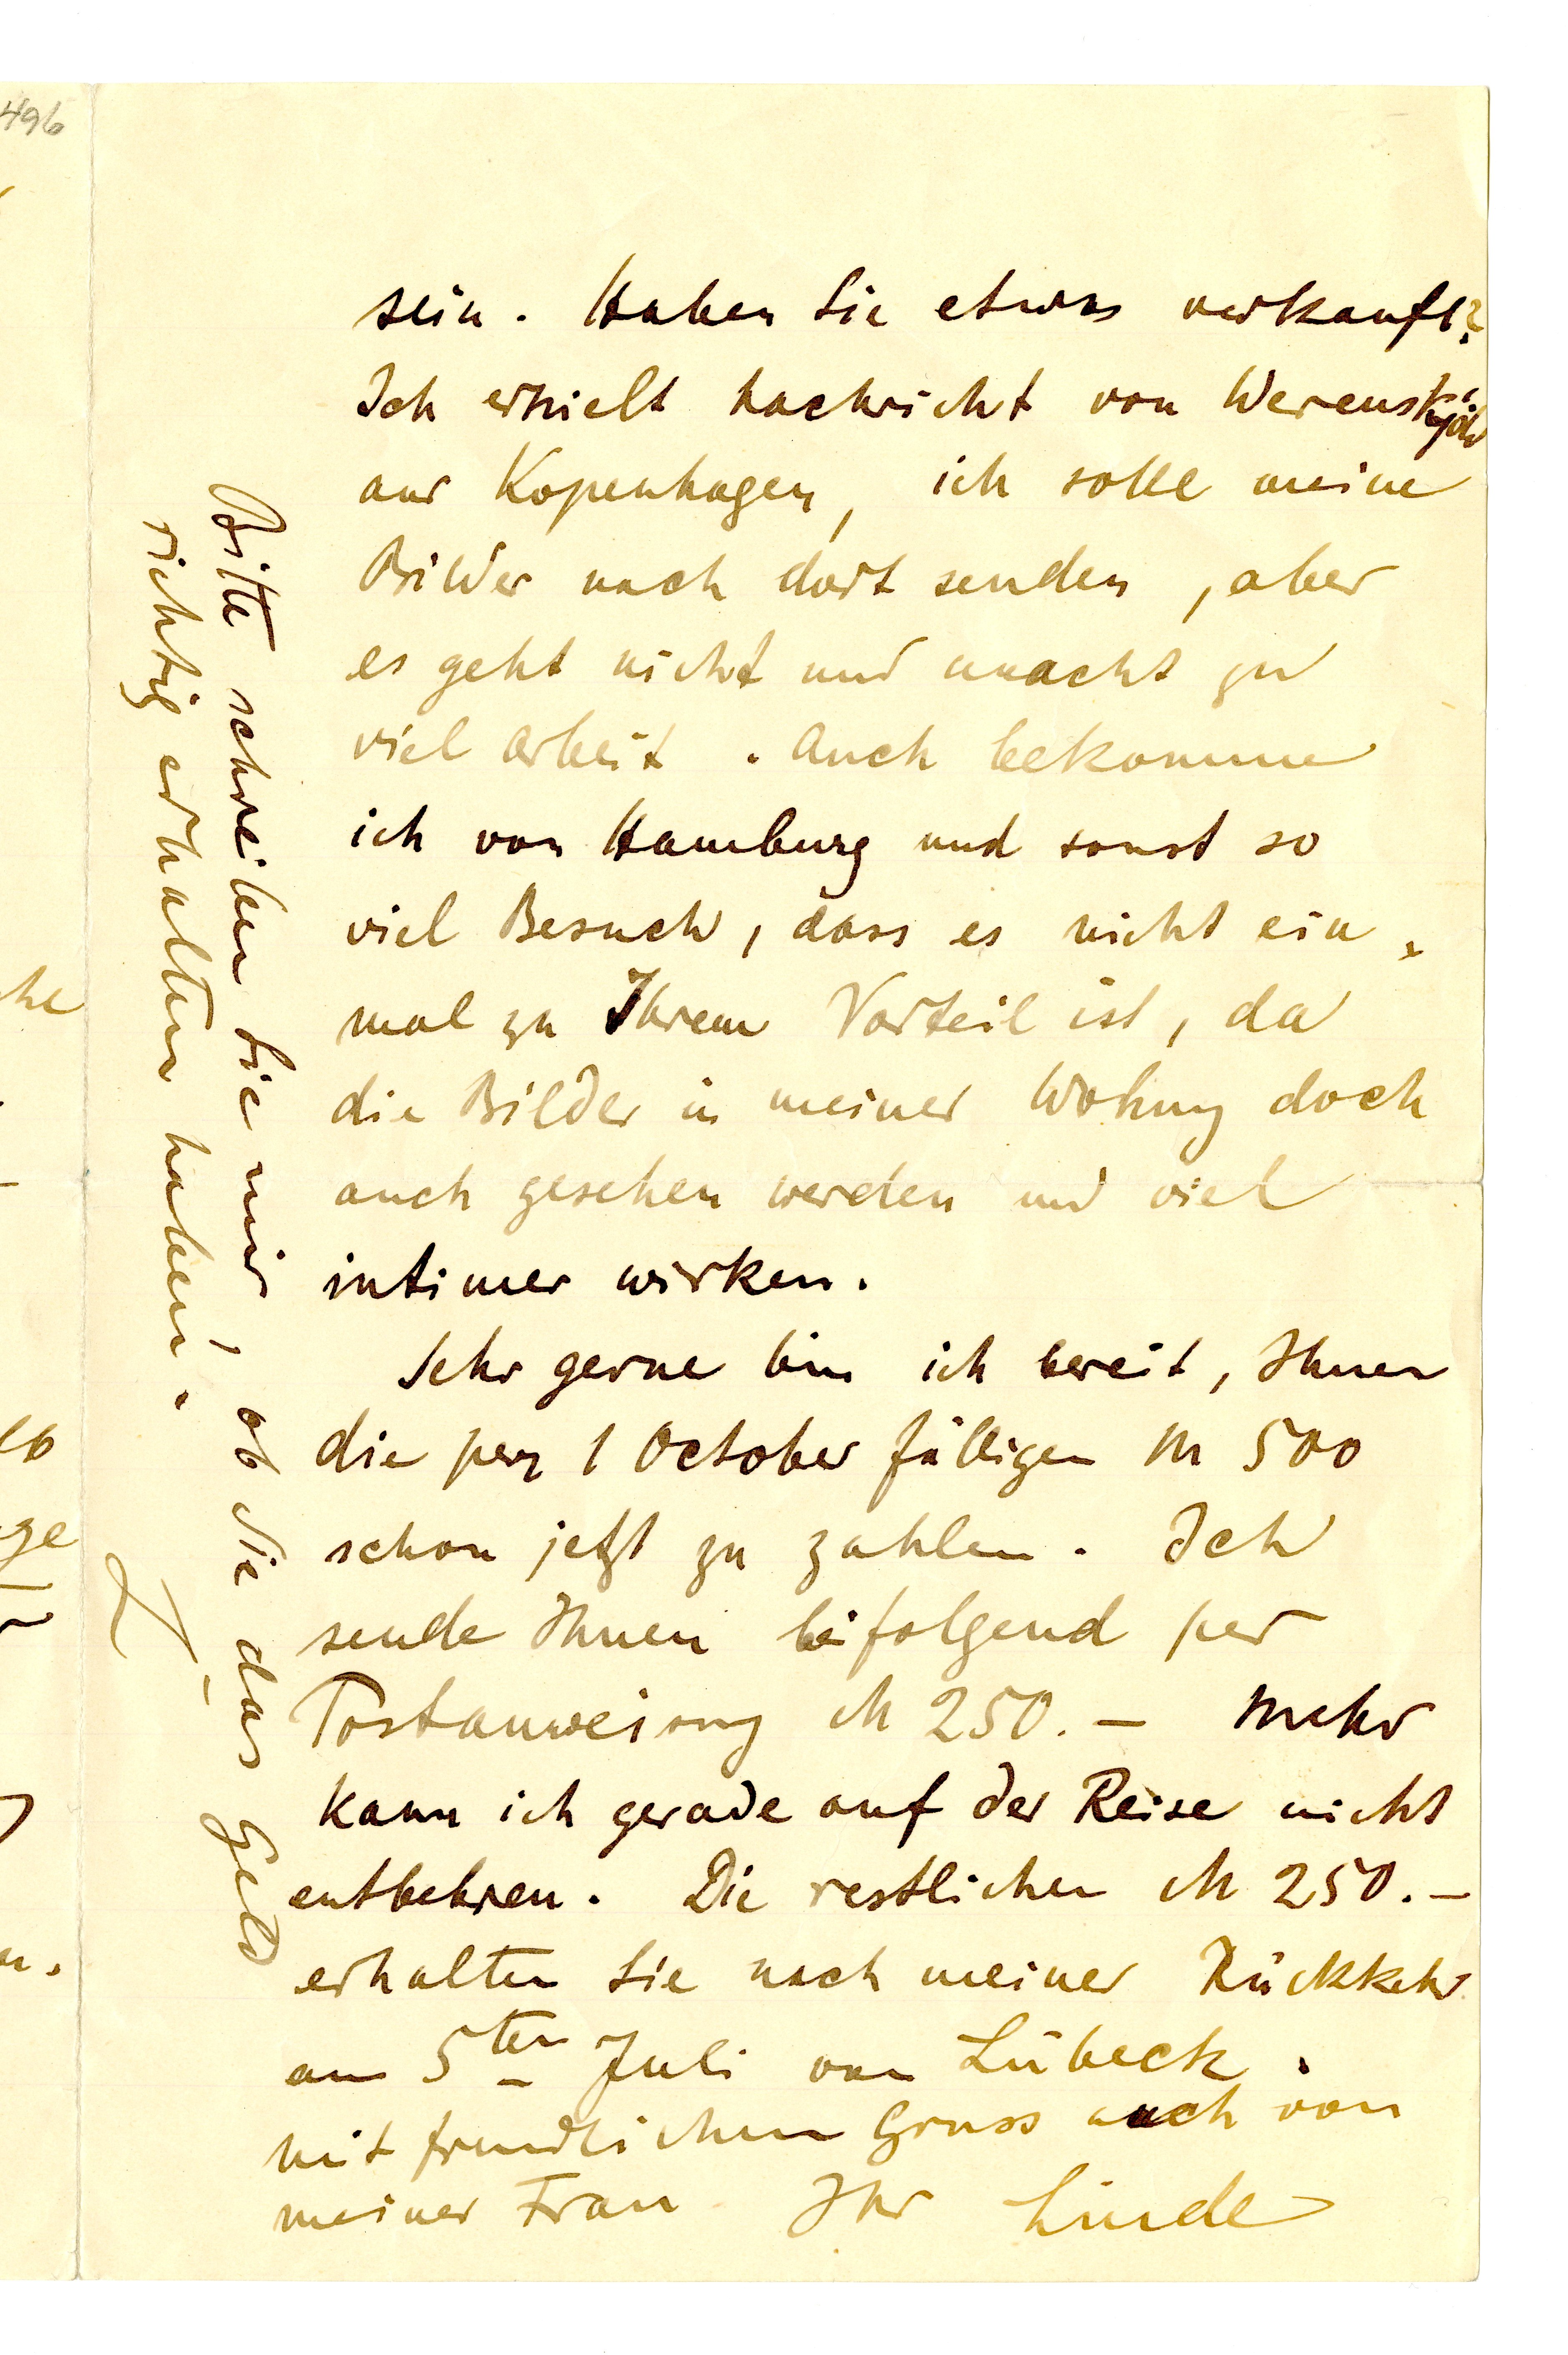 496
sein. Haben Sie etwas verkauft?
Ich erhielt Nachricht von Werenskjöld
aus Kopenhagen, ich solle meine
Bilder nach dort senden, aber
es geht nicht und macht zu
viel Arbeit. Auch bekomme
ich von Hamburg und sonst so
viel Besuch, dass es nicht ein-
mal zu Ihrem Vorteil ist, da
die Bilder in meiner Wohnung doch
auch gesehen werden und viel
intimer wirken.
Sehr gerne bin ich bereit, Ihnen
die per 1 October fälligen M 500
schon jetzt zu zahlen. Ich
sende Ihnen beifolgend per
Postanweisung M 250.— Mehr
kann ich gerade auf der Reise nicht
entbehren. Die restlichen M 250.—
erhalten Sie nach meiner Rückkehr
am 5ten Juli von Lübeck.
Mit freundlichem Gruss auch von
meiner Frau Ihr Linde
Bitte schreiben Sie mir, ob Sie das Geld
richtig erhalten haben.
L.